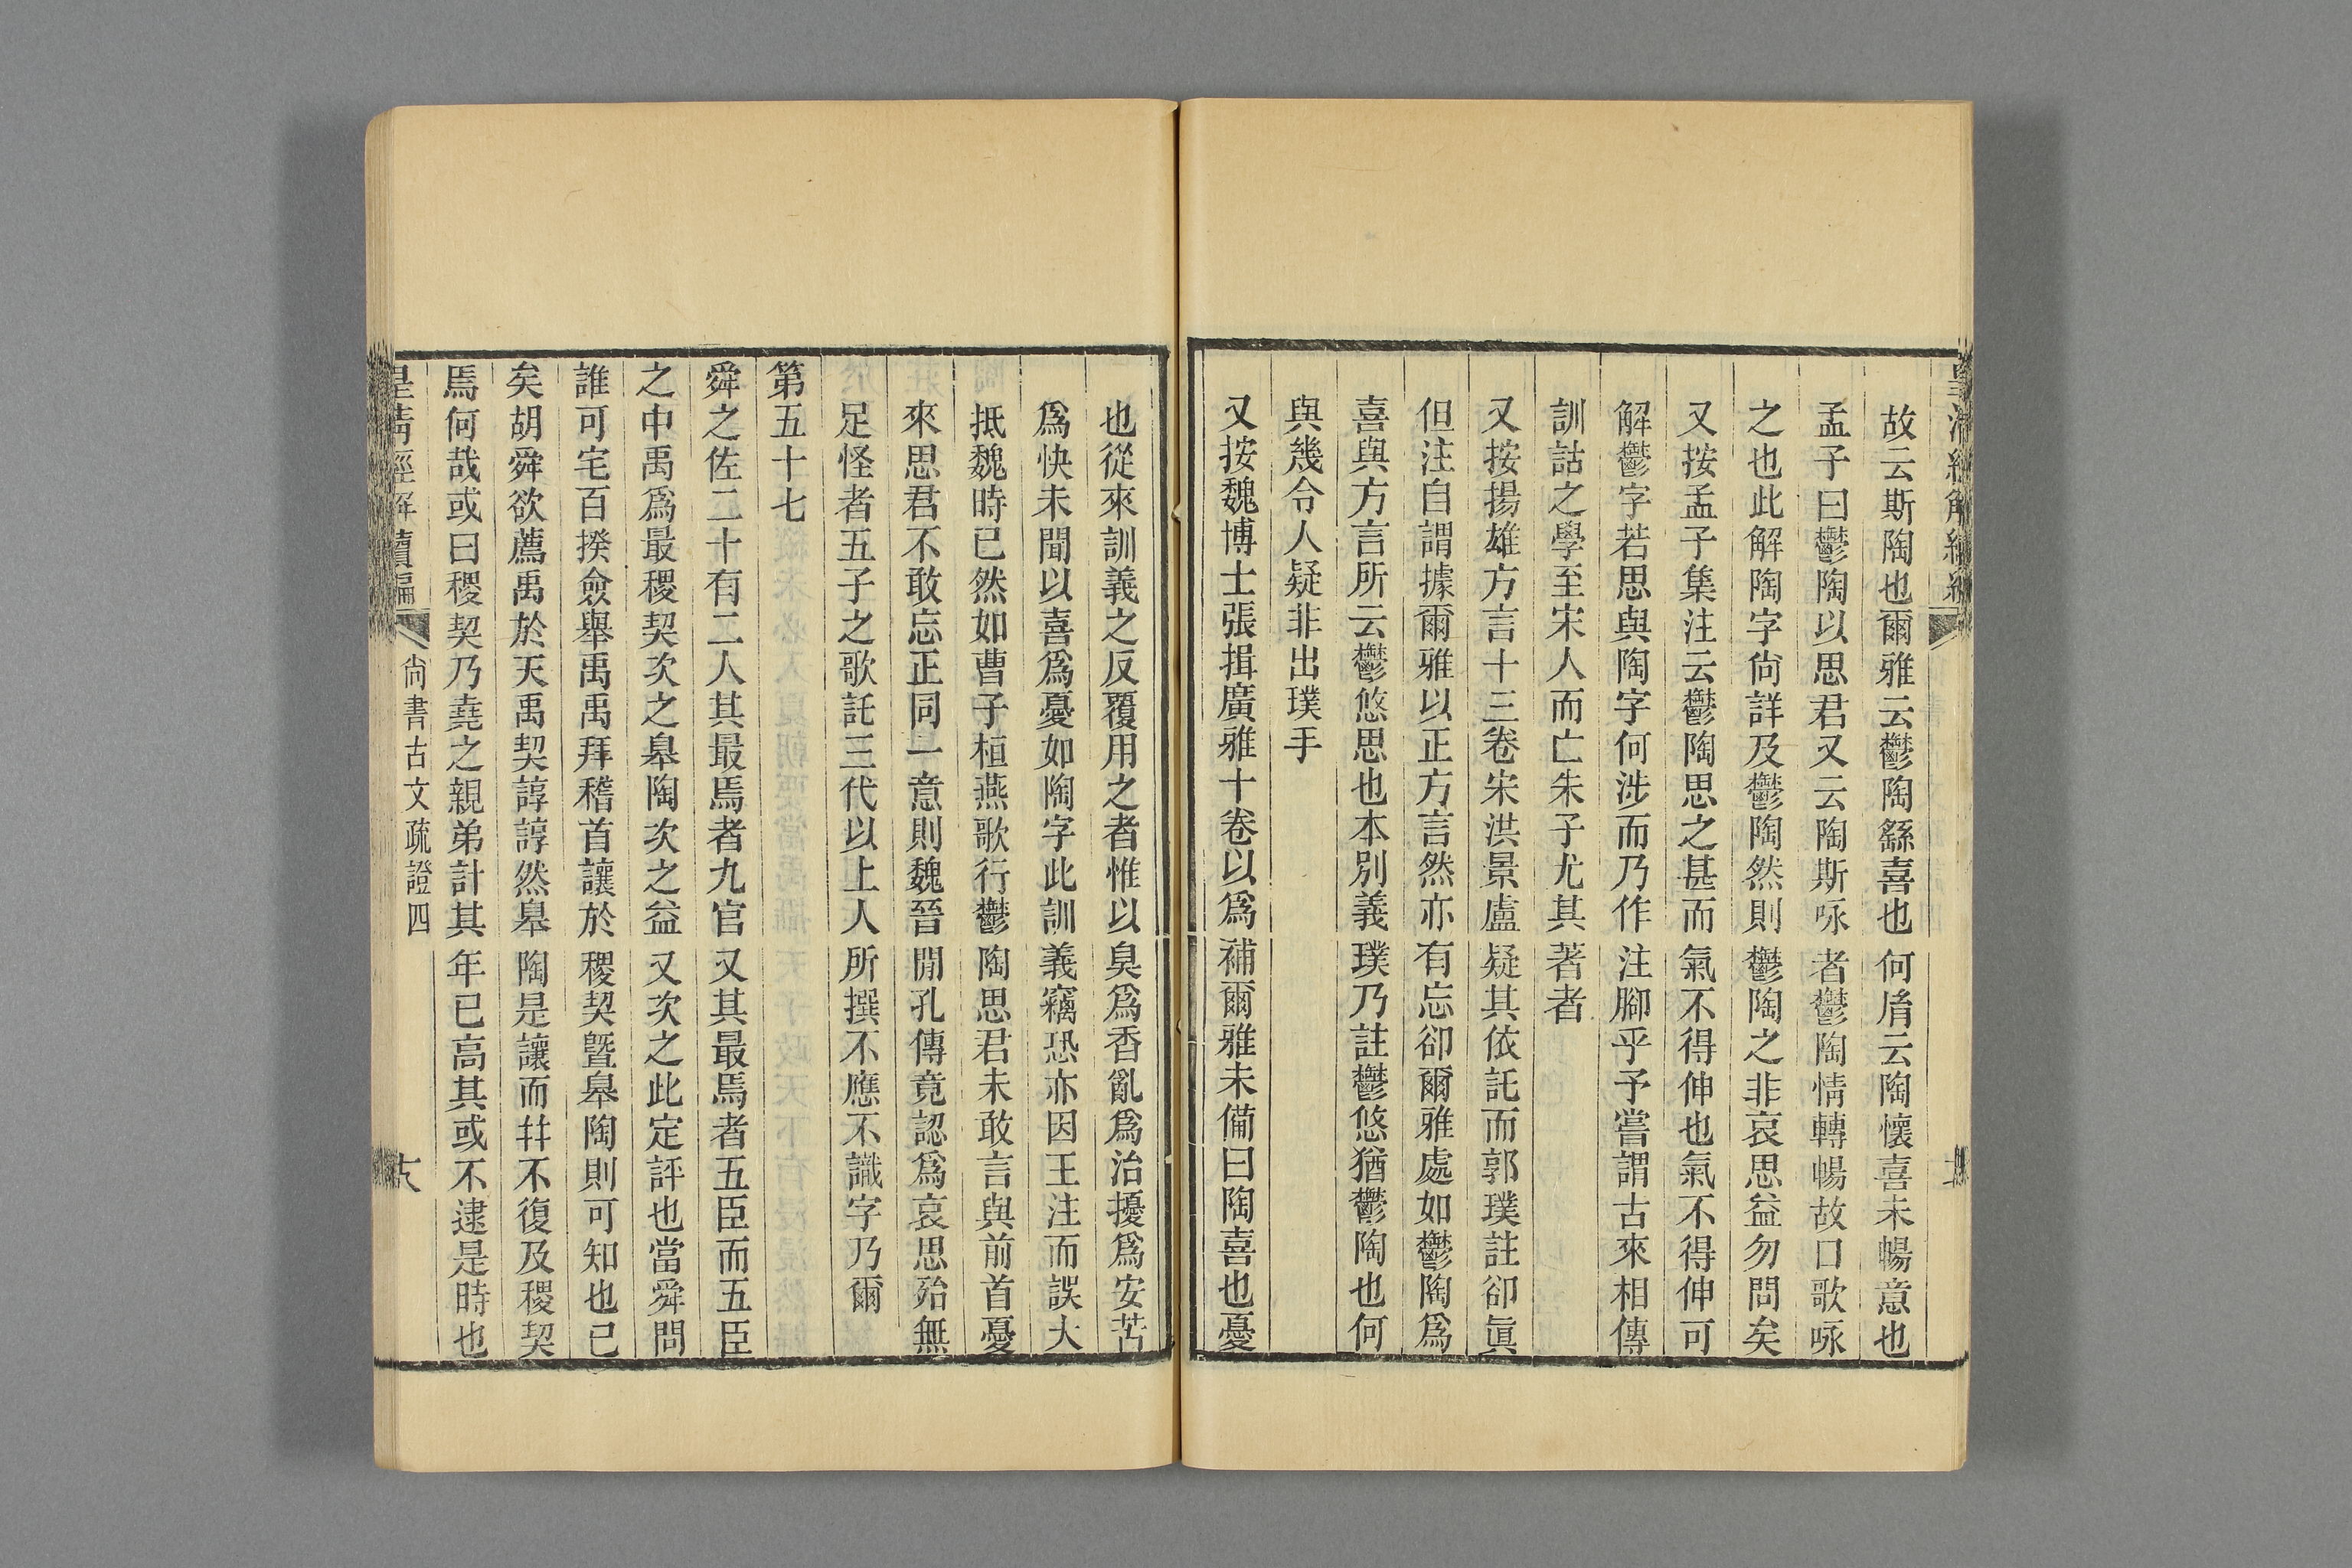 故云斯陶也爾雅云鬱陶繇喜也何胤云陶懷喜未暢意也
孟子曰鬱陶以思君又云陶斯咏者鬱陶情轉暢故口歌咏
之也此解陶字尙詳及鬱陶然則鬱陶之非哀思益勿問矣
又按孟子集注云鬱陶思之甚而氣不得伸也氣不得伸可
解鬱字若思與陶字何涉而乃作注腳乎予嘗謂古來相傳
訓詁之學至宋人而亡朱子尤其著者
又按揚雄方言十三卷宋洪景盧疑其依託而郭璞註卻眞
但注自謂據爾雅以正方言然亦有忘卻爾雅處如鬱陶爲
喜與方言所云鬱悠思也本別義璞乃註鬱悠猶鬱陶也何
與幾令人疑非出璞手
又按魏博士張揖廣雅十卷以爲補爾雅未備曰陶喜也憂
也從來訓義之反覆用之者惟以臭爲香亂爲治擾爲安苦
爲快未聞以喜爲憂如陶字此訓義竊恐亦因王注而誤大
抵魏時已然如曹子桓燕歌行鬱陶思君未敢言與前首憂
來思君不敢忘正同一意則魏晉閒孔傳竟認爲哀思殆無
足怪者五子之歌託三代以上人所撰不應不識字乃爾
第五十七
舜之佐二十有二人其最焉者九官又其最焉者五臣而五臣
之中禹爲最稷契次之皋陶次之益又次之此定評也當舜問
誰可宅百揆僉舉禹禹拜稽首讓於稷契曁皋陶則可知也已
矣胡舜欲薦禹於天禹契諄諄然皋陶是讓而幷不復及稷契
焉何哉或曰稷契乃堯之親弟計其年已高其或不逮是時也
皇淸經解續編 尙書古文疏證四 六